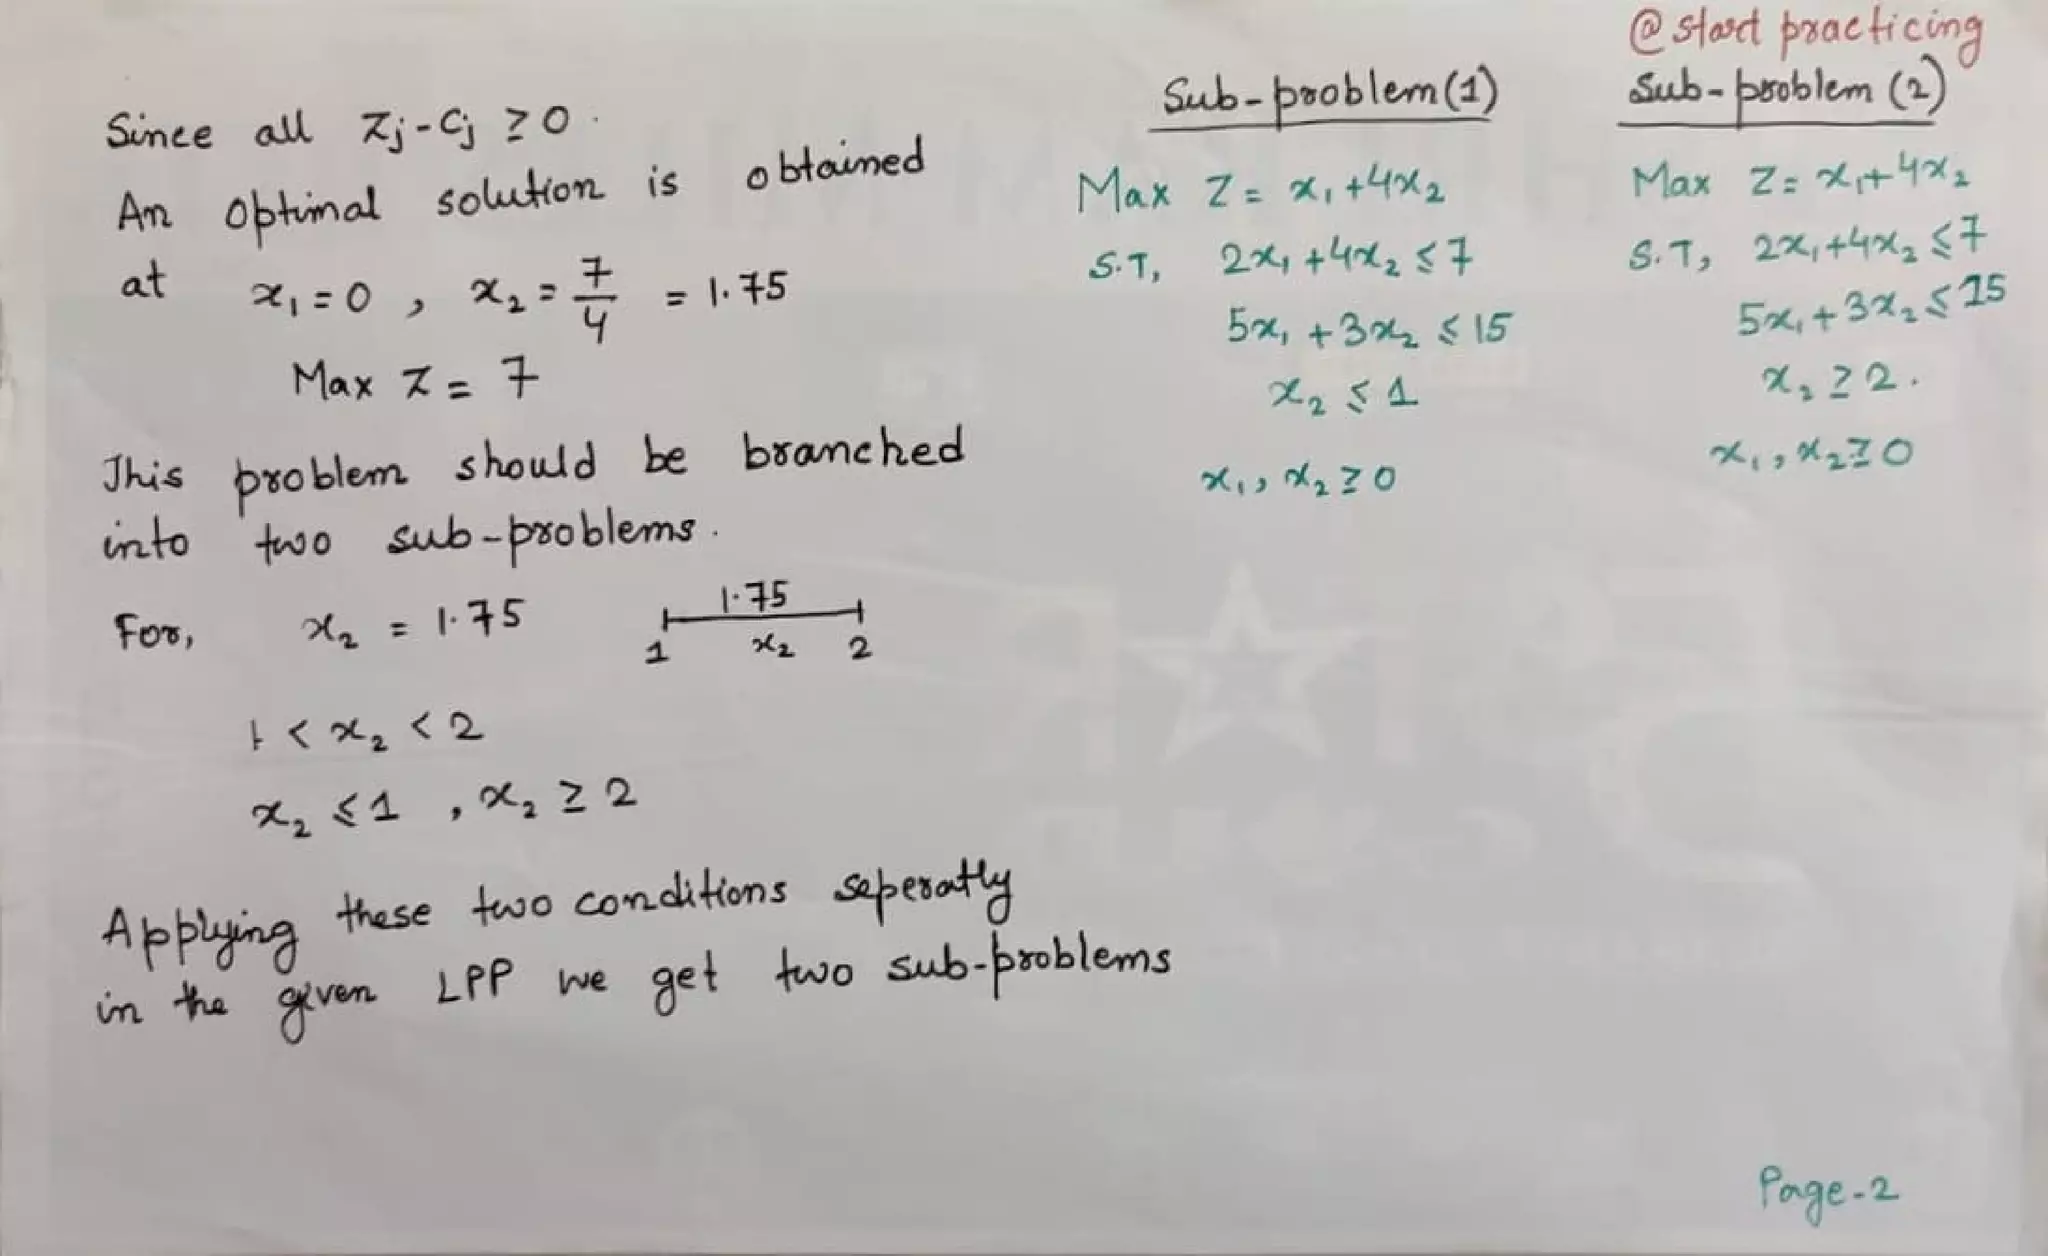 Since all Zj - Cj ≥ 0.
An Optimal solution is obtained
at x₁ = 0 , x₂ = 7/4 = 1.75
Max Z = 7
This problem should be branched
into two sub-problems.
For, x₂ = 1.75
1.75
1 x₂ 2
1 < x₂ < 2
x₂ ≤ 1 , x₂ ≥ 2
Applying these two conditions seperatly
in the given LPP we get two sub-problems
Sub-problem(1)
Max Z = x₁ + 4x₂
S.T, 2x₁ + 4x₂ ≤ 7
5x₁ + 3x₂ ≤ 15
x₂ ≤ 1
x₁, x₂ ≥ 0
@start practicing
Sub-problem (2)
Max Z = x₁ + 4x₂
S.T, 2x₁ + 4x₂ ≤ 7
5x₁ + 3x₂ ≤ 15
x₂ ≥ 2.
x₁, x₂ ≥ 0
Page-2